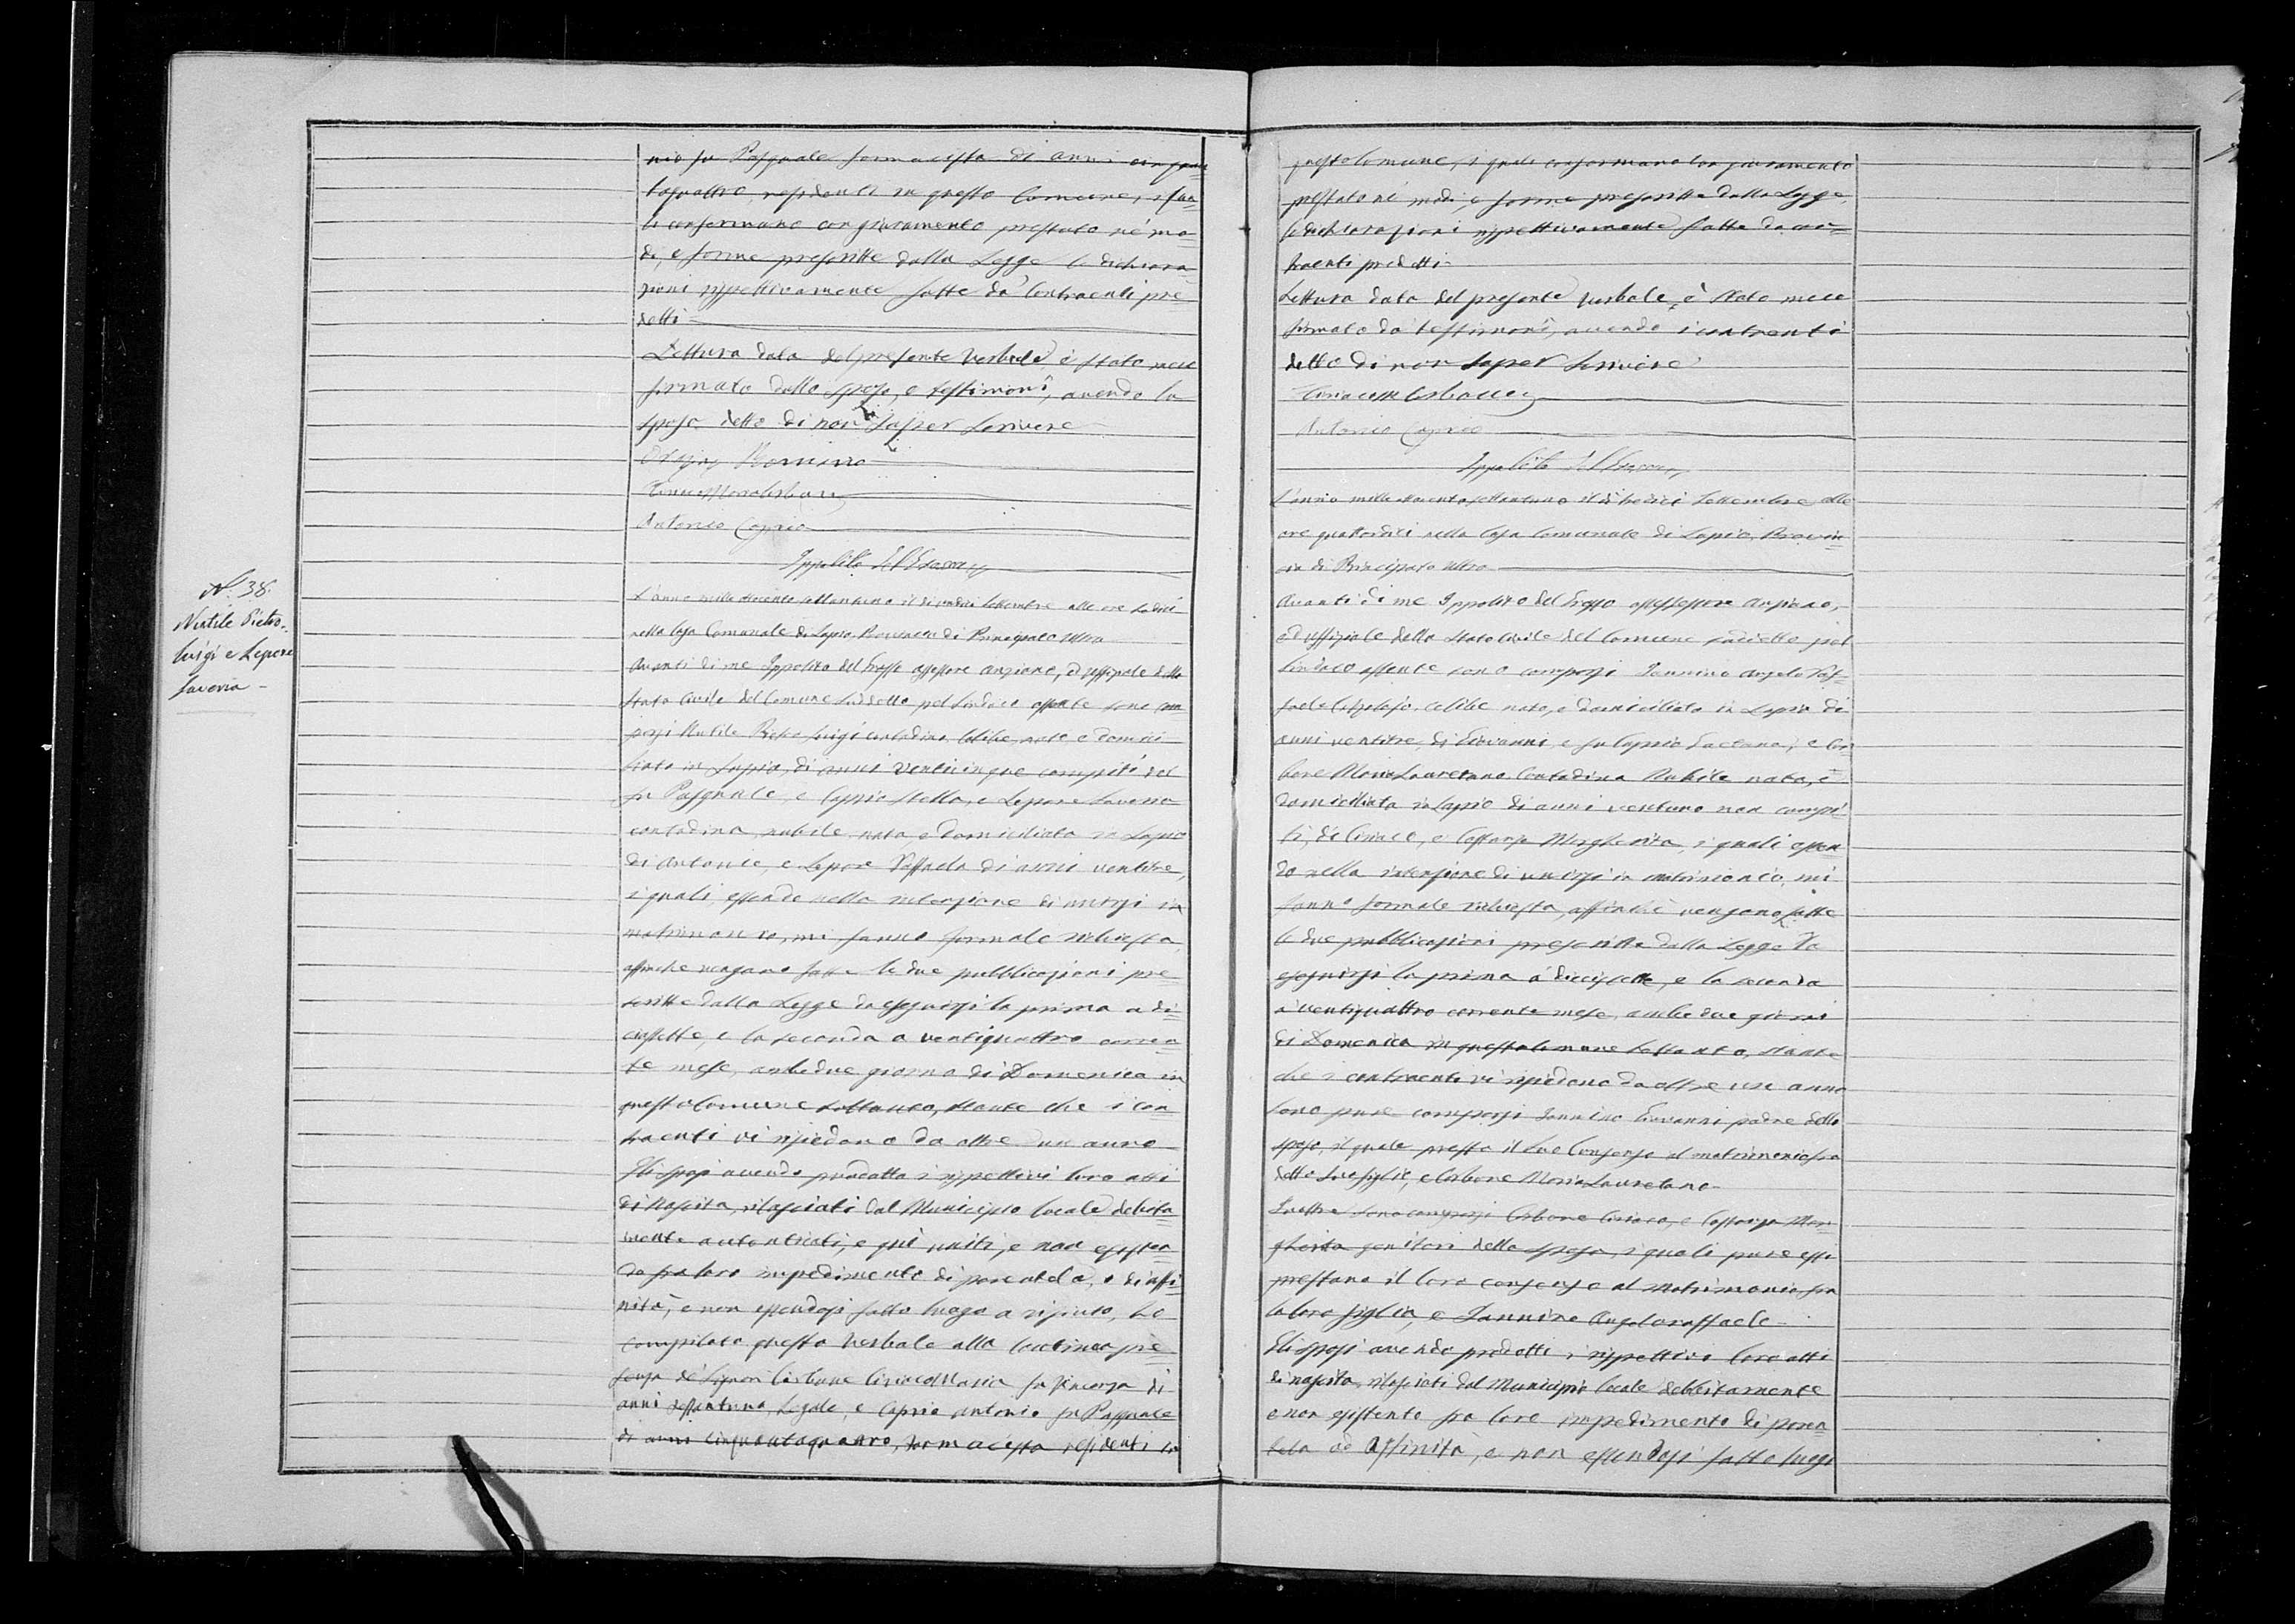 nio fu Pasquale farmacista di anni cinquan=
taquattro, residenti in questo Comune, i qua=
li confermano con giuramento prestato né mo=
di, e forme prescritte dalla Legge le dichiara=
zioni rispettivamente fatte da' contraenti pre=
detti
Lettura data del presente verbale è stato meco
firmato dallo sposo, e testimonî, avendo la
sposa detto di non saper scrivere
Antonio Caprio
Ippolito del
N.° 38.
Nutile Pietro
Luigi e Lepore
Saveria
L'anno mille ottocento settantuno il dì undici Settembre alle ore tredici
nella Casa Comunale di Lapio, Provincia di Principato Ultra
Avanti di me Ippolito del Grosso assessore anziano, ed uffiziale dello
Stato Civile del Comune suddetto pel Sindaco assente sono com=
parsi Nutile Pietro Luigi contadino celibe nato e domici=
liato in Lapio, di anni venticinque compiti del
fu Pasquale, e Caprio Stella, e Lepore Saveria
contadina, nubile nata, e domiciliata in Lapio
di Antonio, e Lepore Raffaela di anni ventitre,
i quali essendo nella intenzione di unirsi in
matrimonio, mi fanno formale richiesta,
affinche vengano fatte le due pubblicazioni pre=
scritte dalla Legge da eseguirsi la prima a di=
ciassette, e la seconda a ventiquattro corren=
te mese, ambedue giorno di Domenica in
questo Comune soltanto, stante che i con=
traenti vi risiedono da oltre un anno
Gli sposi avendo prodotto i rispettivi loro atti
di nascita, rilasciati dal Municipio locale debita=
mente autenticati, e quì uniti, e non esisten=
do fra loro impedimento di parentela, o di affi=
nità, e non essendosi fatto luogo a rifiuto, ho
compilato questo verbale alla continua pre=
senza de' Signori Carbone Ciriaco Maria fu Vincenzo di
anni sessantuno, Legale, e Caprio Antonio fu Pasquale
di anni cinquantaquattro, farmacista residenti in
questo Comune, i quali confermano con giuramento
prestato né modi, e forme prescritte dalla Legge,
le dichiarazioni rispettivamente fatte da con=
traenti predetti
Lettura data del presente verbale, è stato meco
firmato da' testimonî, avendo i contraenti
detto di non saper scrivere
Antonio Caprio
Ippolito del
L'anno mille ottocento settantuno il dì tredici Settembre alle
ore quattordici nella Casa Comunale di Lapio, Provin=
cia di Principato Ultra
Avanti di me Ippolito del Grosso assessore anziano,
ed uffiziale dello Stato Civile del Comune suddetto pel
Sindaco assente sono comparsi Iannino Angelo Raf=
faele celibe nato, e domiciliato in Lapio di
anni ventitre, di Giovanni, e fu Caprio Gaetana, e Car=
bone Maria Lauretana Contadina Nubile nata, e
domiciliata in Lapio di anni ventuno non compi=
ti, di Ciriaco, e Costanza Margherita, i quali essen=
do nella intenzione di unirsi in matrimonio, mi
fanno formale richiesta, affinchè vengano fatte
le due pubblicazioni prescritte dalla Legge da
eseguirsi la prima a diecissette, e la seconda
a ventiquattro corrente mese, ambedue giorni
di Domenica in questo Comune soltanto, stante
che i contraenti vi risiedono da oltre un anno
Sono pure comparsi Iannino Giovanni padre dello
sposo, il quale presta il suo Consenso al matrimonio fra
detto suo figlio, e Carbone Maria Lauretana
Inoltre sono comparsi Carbone Ciriaco, e Costanza Mar=
gherita genitori della sposa, i quali pure essi
prestano il loro consenso al Matrimonio fra
la loro figlia, e Iannino Angelo raffaele
Gli sposi avendo prodotti i rispettivi loro atti
di nascita, rilasciati dal Municipio locale debbitamente
e non esistento fra loro impedimento di paren=
tela od Affinità, e non essendosi fatto luogo